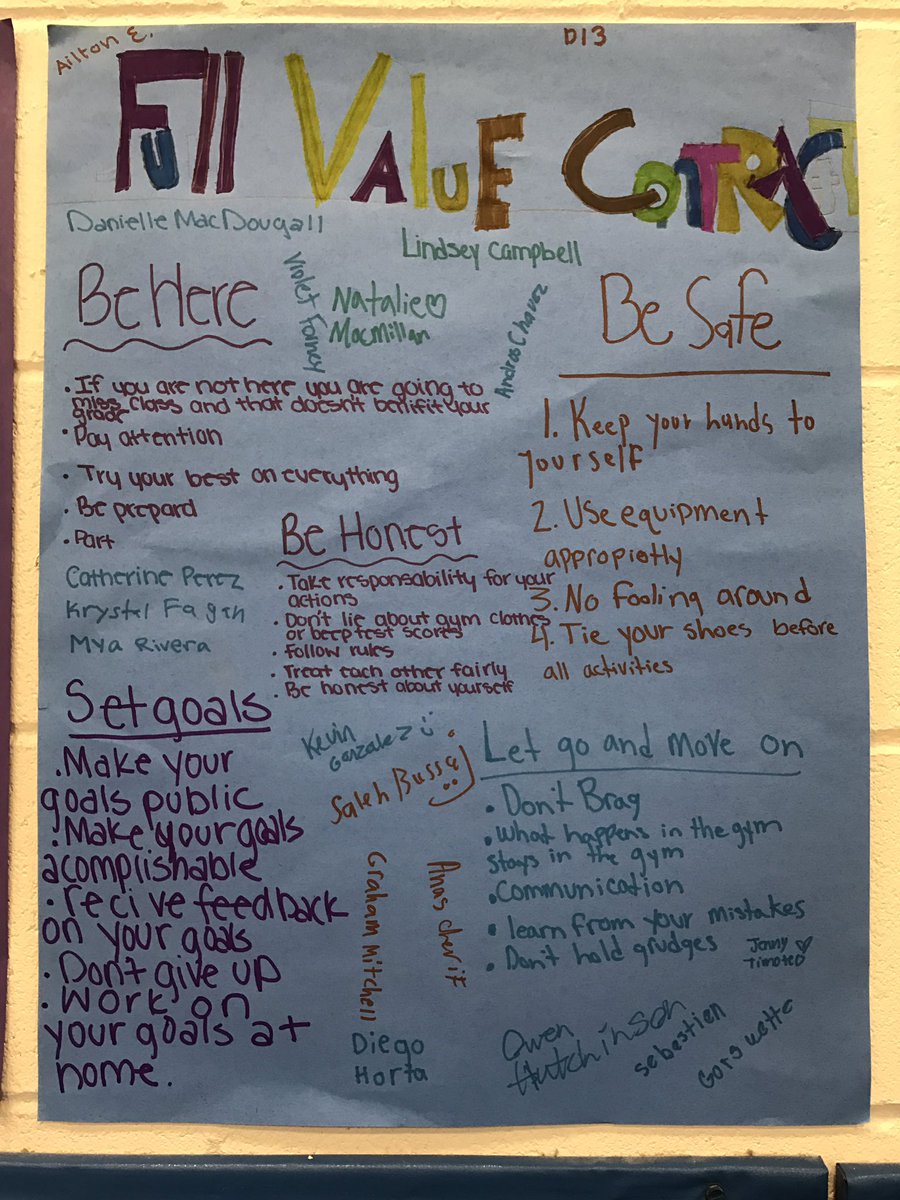 Ailton E.
D13
Full Value Contract
Danielle MacDougall
Lindsey Campbell
Violet Forney
Natalie
Macmillan
Andres Chavez
Be Here
• If you are not here you are going to
miss class and that doesn't benifit your
grade
• Pay attention
• Try your best on everything
• Be prepard
• Part
Catherine Perez
Krystel Fagan
Mya Rivera
Be Safe
1. Keep your hands to
yourself
2. Use equipment
appropiotly
3. No fooling around
4. Tie your shoes before
all activities
Be Honest
• Take responsability for your
actions
• Don't lie about gym clothes
or beep test scores
• Follow rules
• Treat each other fairly
• Be honest about yourself
Set goals
• Make your
goals public
• Make your goals
acomplishable
• recive feedback
on your goals
• Don't give up
• Work on
your goals at
home.
Kevin
Gonzalez
Saleh Bussa
Graham Mitchell
Anas cherif
Diego
Horta
Let go and move on
• Don't Brag
• What happens in the gym
stays in the gym
• Communication
• learn from your mistakes
• Don't hold grudges
Jonny
Timoteo
Owen
Hutchinson
Sebastien